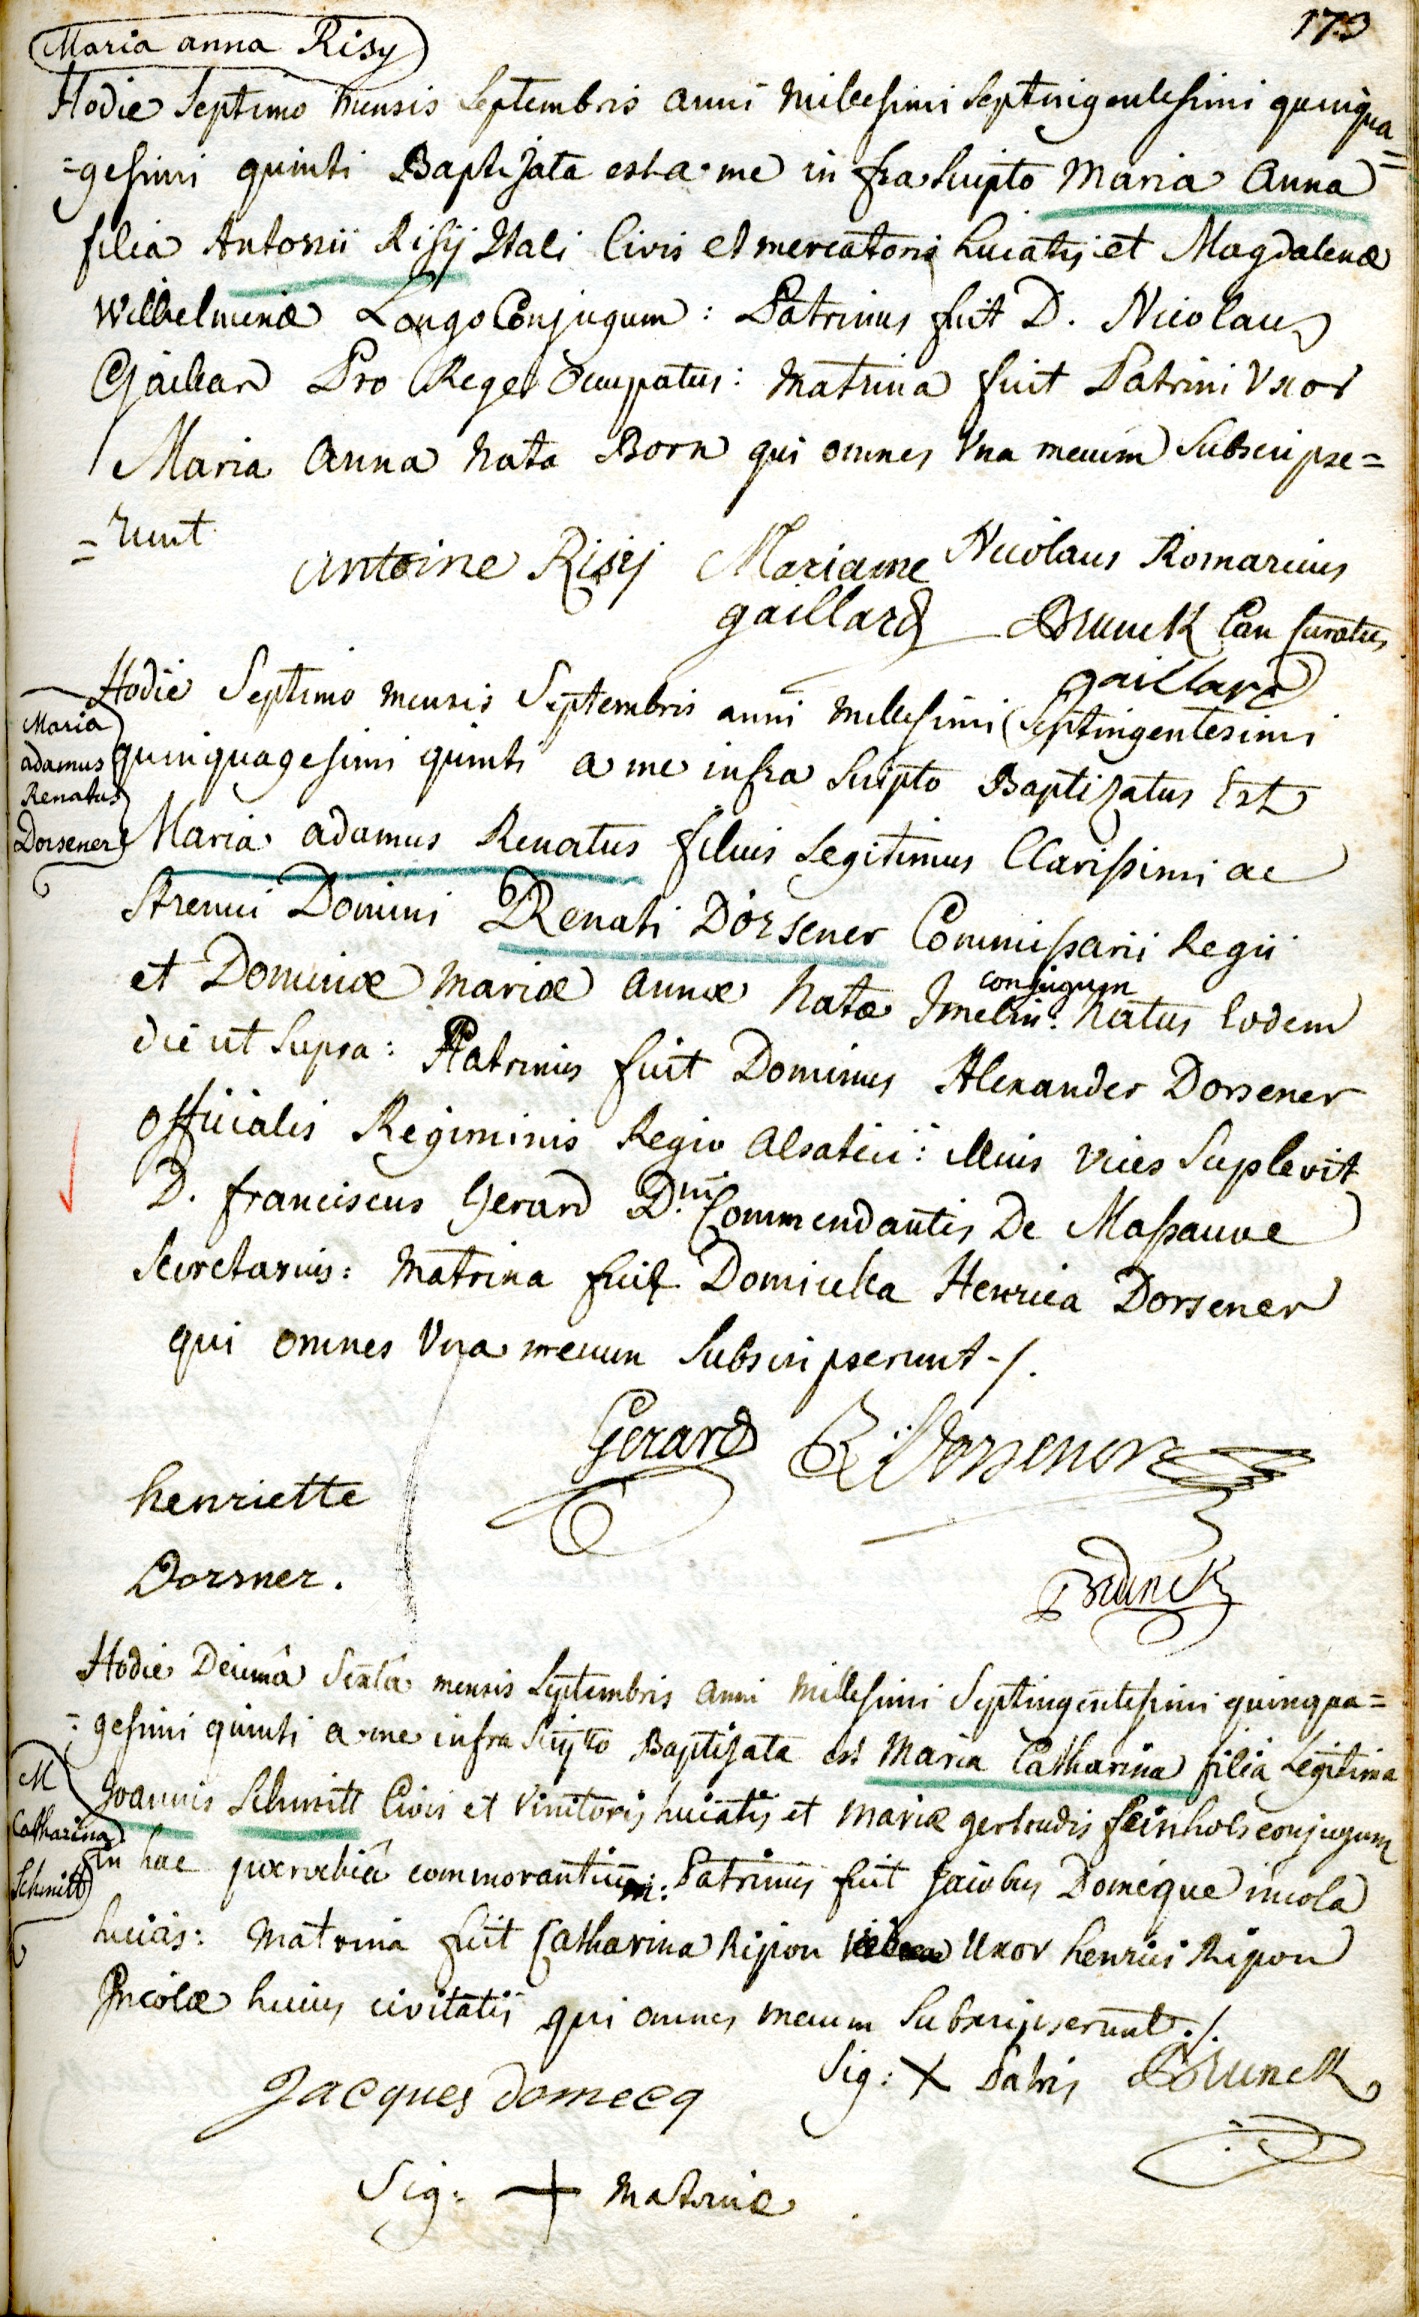 173
Maria anna Risy
Hodie Septimo mensis Septembris anni millesimi Septingentesimi quinqua=
=gesimi quinti Baptizata est a me infra scripto Maria Anna
filia Antonii Risij Itali Civis et mercatoris huiatis et Magdalenæ
Wilhelminæ Longo Conjugum : Patrinus fuit D. Nicolaus
Gailiar Pro Rege Occupatus : Matrina fuit Patrini Uxor
Maria Anna Nata Born qui omnes Una mecum Subscripse=
=runt
Antoine Risij Mariane Nicolaus Romaricus
gaillard Brunck Can Curatus
gaillard
Maria
adamus
Renatus
Dorsener
Hodie Septimo mensis Septembris anni millesimi Septingentesimi
quinquagesimi quinti a me infra Scripto Baptizatus Est
Maria adamus Renatus filius Legitimus Clarissimi ac
Strenui Domini Renati Dorsener Commissarii Regii
et Dominæ Mariæ Annæ Natæ Imelin : conjugum Natus Eodem
die ut Supra : Patrinus fuit Dominus Alexander Dorsener
Officialis Regiminis Regio Alsatici : illius vices Suplevit
D. franciscus Gerard D.ni Commendantis De Massauve
Secretarius : Matrina fuit Domicella Henrica Dorsener
qui omnes Una mecum Subscripserunt -/.
Gerard R: Dorsener
henriette
Dorsner.
Brunck
Hodie Decimâ Sextâ mensis Septembris anni millesimi Septingentesimi quinqua=
=gesimi quinti a me infra Scripto Baptizata est Maria Catharina filia Legitima
M
Catharina
Schmitt
Joannis Schmitt Civis et Vinitoris huiatis et Mariæ gertrudis feinhols conjugum
in hac parochiâ commorantium : Patrinus fuit Jacobus Doméque incola
huias : Matrina fuit Catharina Ripon Uxor henrici Ripon
Incolæ huius civitatis qui omnes mecum Subscripserunt ./.
Jacques domecq Sig : X Patris Brunck
Sig : + Matrinæ